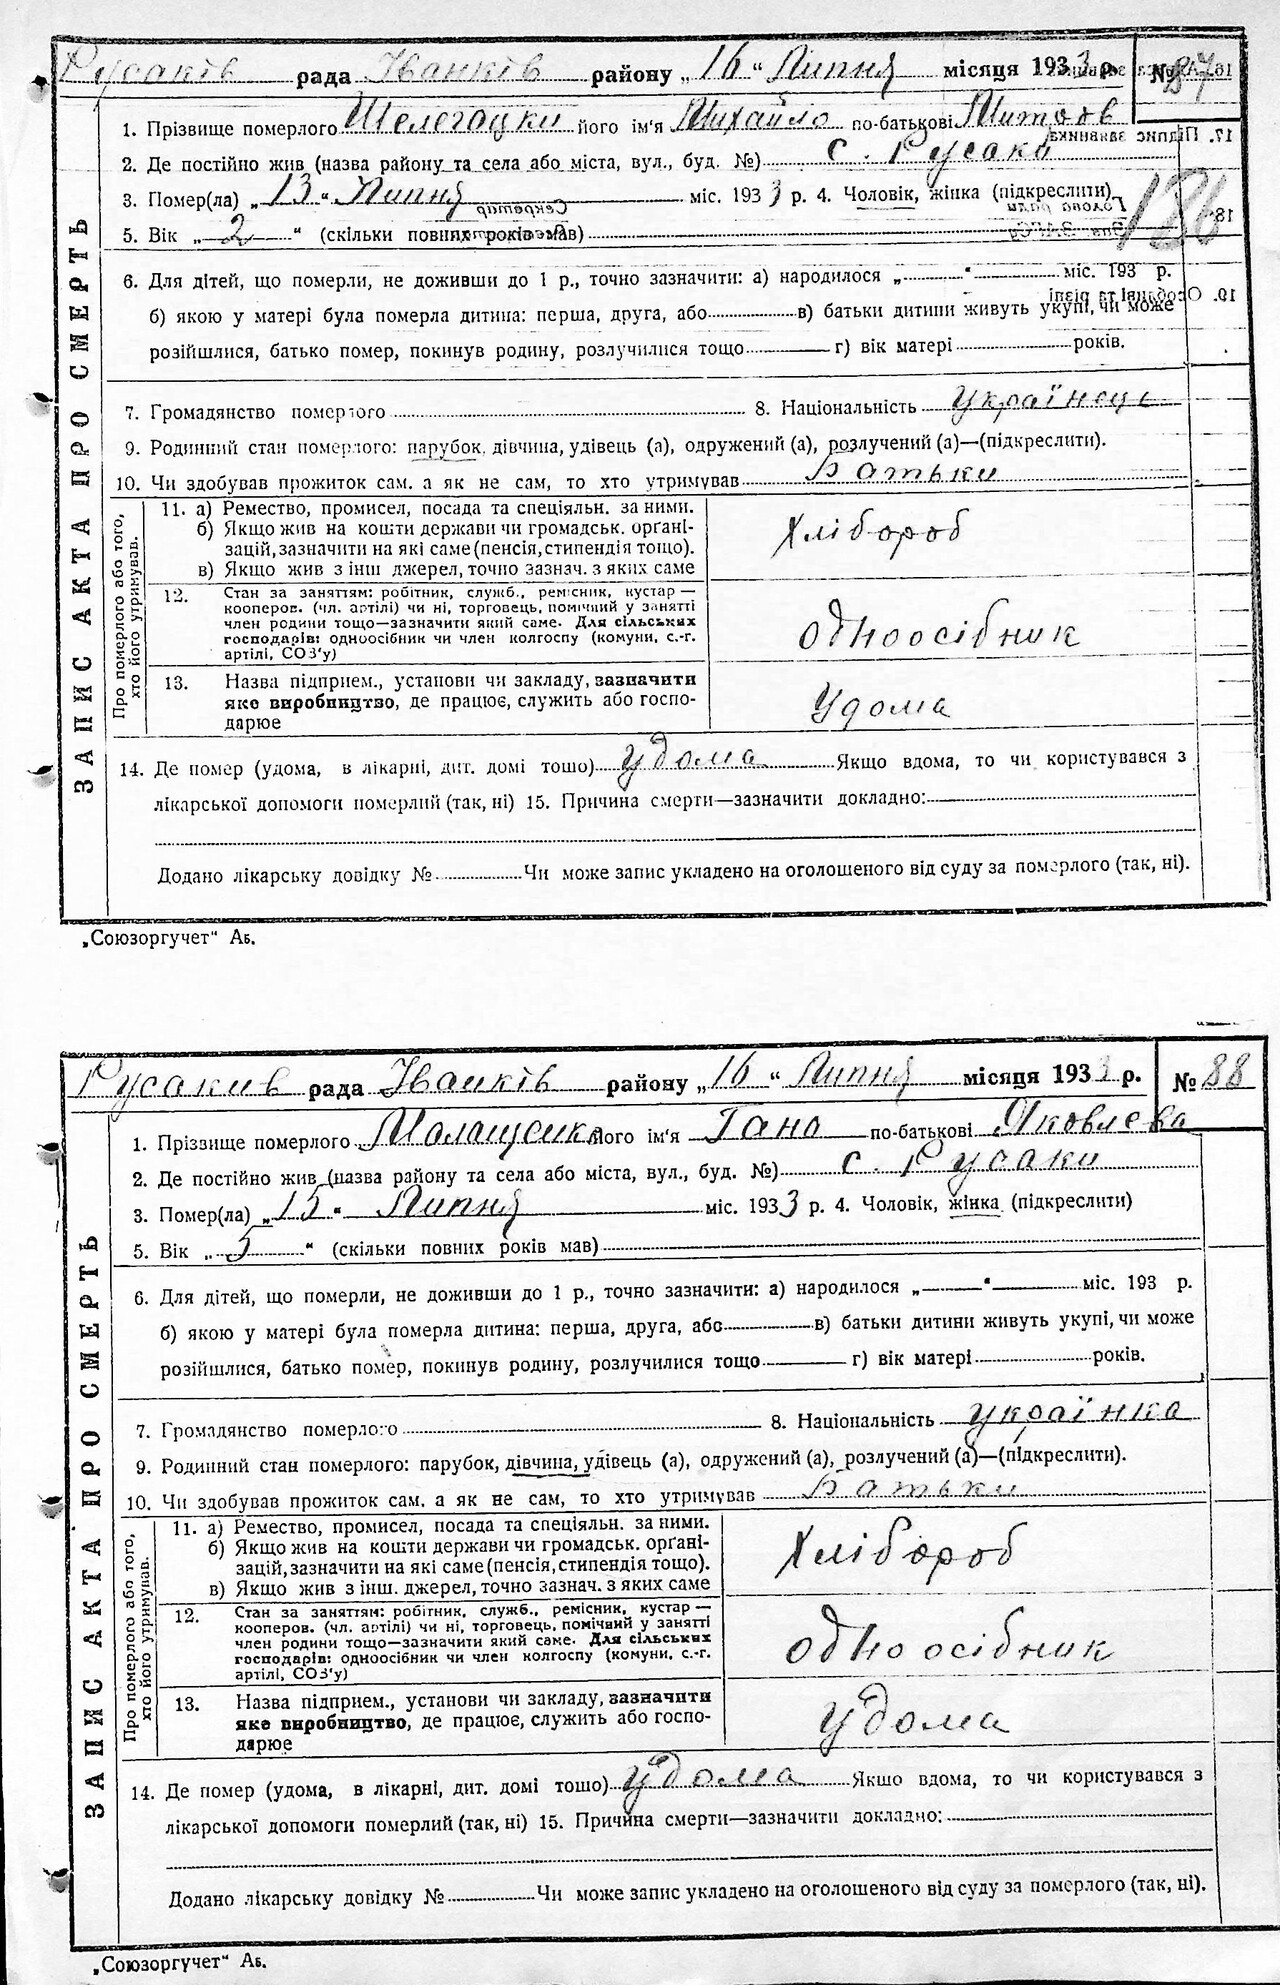 Русаків рада Іванків району „16“ Липня місяця 1933 р. № 87
1. Прізвище померлого його ім'я Михайло по-батькові
2. Де постійно жив (назва району та села або міста, вул., буд. №) с. Русаки
3. Помер(ла) „13“ Липня міс. 1933 р. 4. Чоловік, жінка (підкреслити)
186
5. Вік „2“ (скільки повних років мав)
6. Для дітей, що померли, не доживши до 1 р., точно зазначити: а) народилося „—“ — міс. 193 р.
б) якою у матері була померла дитина: перша, друга, або — в) батьки дитини живуть укупі, чи може
розійшлися, батько помер, покинув родину, розлучилися тощо — г) вік матері — років.
7. Громадянство померлого — 8. Національність Українець
9. Родинний стан померлого: парубок, дівчина, удівець (а), одружений (а), розлучений (а)—(підкреслити).
10. Чи здобував прожиток сам, а як не сам, то хто утримував Батьки
11. а) Ремество, промисел, посада та спеціяльн. за ними.
б) Якщо жив на кошти держави чи громадськ. орґані-
зацій, зазначити на які саме (пенсія, стипендія тощо).
в) Якщо жив з інш джерел, точно зазнач. з яких саме
Хлібороб
12. Стан за заняттям: робітник, служб., ремісник, кустар —
кооперов. (чл. артілі) чи ні, торговець, помічний у занятті
член родини тощо—зазначити який саме. Для сільських
господарів: одноосібник чи член колгоспу (комуни, с.-г.
артілі, СОЗ'у)
одноосібник
13. Назва підприєм., установи чи закладу, зазначити
яке виробництво, де працює, служить або госпо-
дарює
Удома
14. Де помер (удома, в лікарні, дит. домі тошо) удома Якщо вдома, то чи користувався з
лікарської допомоги померлий (так, ні) 15. Причина смерти—зазначити докладно:
Додано лікарську довідку № Чи може запис укладено на оголошеного від суду за померлого (так, ні).
ЗАПИС АКТА ПРО СМЕРТЬ
Про померлого або того,
хто його утримував.
„Союзоргучет“ Аб.
Русакив рада Іванків району „16“ Липня місяця 1933 р. № 88
1. Прізвище померлого його ім'я Гана по-батькові Яковлєва
2. Де постійно жив (назва району та села або міста, вул., буд. №) с. Русаки
3. Помер(ла) „15“ Липня міс. 1933 р. 4. Чоловік, жінка (підкреслити)
5. Вік „5“ (скільки повних років мав)
6. Для дітей, що померли, не доживши до 1 р., точно зазначити: а) народилося „—“ — міс. 193 р.
б) якою у матері була померла дитина: перша, друга, або — в) батьки дитини живуть укупі, чи може
розійшлися, батько помер, покинув родину, розлучилися тощо — г) вік матері — років.
7. Громадянство померлого — 8. Національність Українка
9. Родинний стан померлого: парубок, дівчина, удівець (а), одружений (а), розлучений (а)—(підкреслити).
10. Чи здобував прожиток сам, а як не сам, то хто утримував Батьки
11. а) Ремество, промисел, посада та спеціяльн. за ними.
б) Якщо жив на кошти держави чи громадськ. орґані-
зацій, зазначити на які саме (пенсія, стипендія тощо).
в) Якщо жив з інш. джерел, точно зазнач. з яких саме
Хлібороб
12. Стан за заняттям: робітник, служб., ремісник, кустар —
кооперов. (чл. артілі) чи ні, торговець, помічний у занятті
член родини тощо—зазначити який саме. Для сільських
господарів: одноосібник чи член колгоспу (комуни, с.-г.
артілі, СОЗ'у)
одноосібник
13. Назва підприєм., установи чи закладу, зазначити
яке виробництво, де працює, служить або госпо-
дарює
Удома
14. Де помер (удома, в лікарні, дит. домі тошо) Удома Якшо вдома, то чи користувався з
лікарської допомоги померлий (так, ні) 15. Причина смерти—зазначити докладно:
Додано лікарську довідку № Чи може запис укладено на оголошеного від суду за померлого (так, ні).
ЗАПИС АКТА ПРО СМЕРТЬ
Про померлого або того,
хто його утримував.
„Союзоргучет“ Аб.